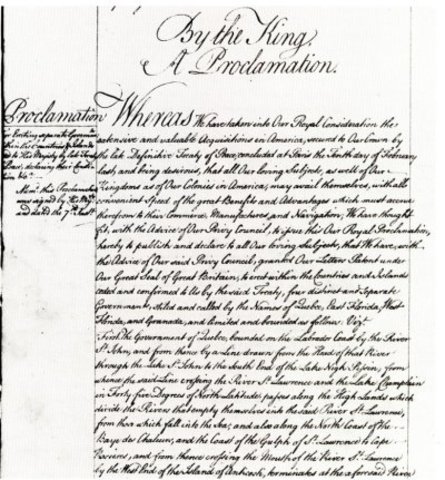 By the King,
A Proclamation.
Proclamation
for Erecting separate Governm
their Countries & Islands
ceded to His Majesty by late Treaty
Peace; declaring their Constitu
tion &c.
Mem: this Proclamation
was signed by His Maj:
and dated the 7th Inst
Whereas We have taken into Our Royal Consideration the
extensive and valuable Acquisitions in America, secured to Our Crown by
the late Definitive Treaty of Peace, concluded at Paris the Tenth day of February
last; and being desirous, that all Our loving Subjects, as well of Our
Kingdoms as of Our Colonies in America, may avail themselves, with all
convenient Speed of the great Benefits and Advantages which must accrue
therefrom to their Commerce, Manufactures, and Navigation; We have thought
fit, with the Advice of Our Privy Council, to issue this Our Royal Proclamation,
hereby to publish and declare to all Our loving Subjects, that We have, with
the Advice of Our said Privy Council, granted Our Letters Patent under
Our Great Seal of Great Britain, to erect within the Countries and Islands
ceded and confirmed to Us by the said Treaty, four distinct and separate
Governments, stiled and called by the Names of Quebec, East Florida, West
Florida, and Granada, and limited and bounded as follow: Viz:
First, the Government of Quebec, bounded on the Labrador Coast by the River
St. John, and from thence by a Line drawn from the Head of that River
through the Lake St. John to the South End of the Lake Nigh Pissin, from
whence the said Line crossing the River St. Lawrence and the Lake Champlain
in Forty five Degrees of North Latitude, passes along the High Lands which
divide the Rivers that empty themselves into the said River St. Lawrence,
from those which fall into the Sea; and also along the North Coast of the
Baye des Chaleurs, and the Coast of the Gulph of St. Lawrence to Cape
Rosiers, and from thence crossing the Mouth of the River St. Lawrence
by the West End of the Island of Anticosti, terminates at the aforesaid River